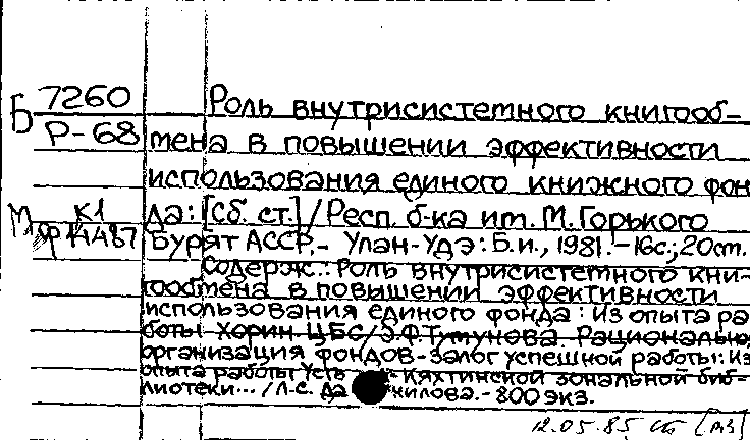 Б 7260
Р-68
Роль внутрисистемного книгооб-
мена в повышении эффективности
использования единого книжного фон
да: [Сб. ст.] / Респ. б-ка им. М. Горького
К1
Бурят АССР. - Улан-Удэ: Б.и., 1981. - 16с.; 20см.
Содерж.: Роль внутрисистемного кни-
гообмена в повышении эффективности
использования единого фонда: Из опыта ра
боты Хорин. ЦБС/Э.Ф.Тумунова. Рациональн
организация фондов - залог успешной работы: Из
опыта работы Усть Кяхтинской зональной биб-
лиотеки... / Л-С. Да килова. - 800 экз.
12.05.85